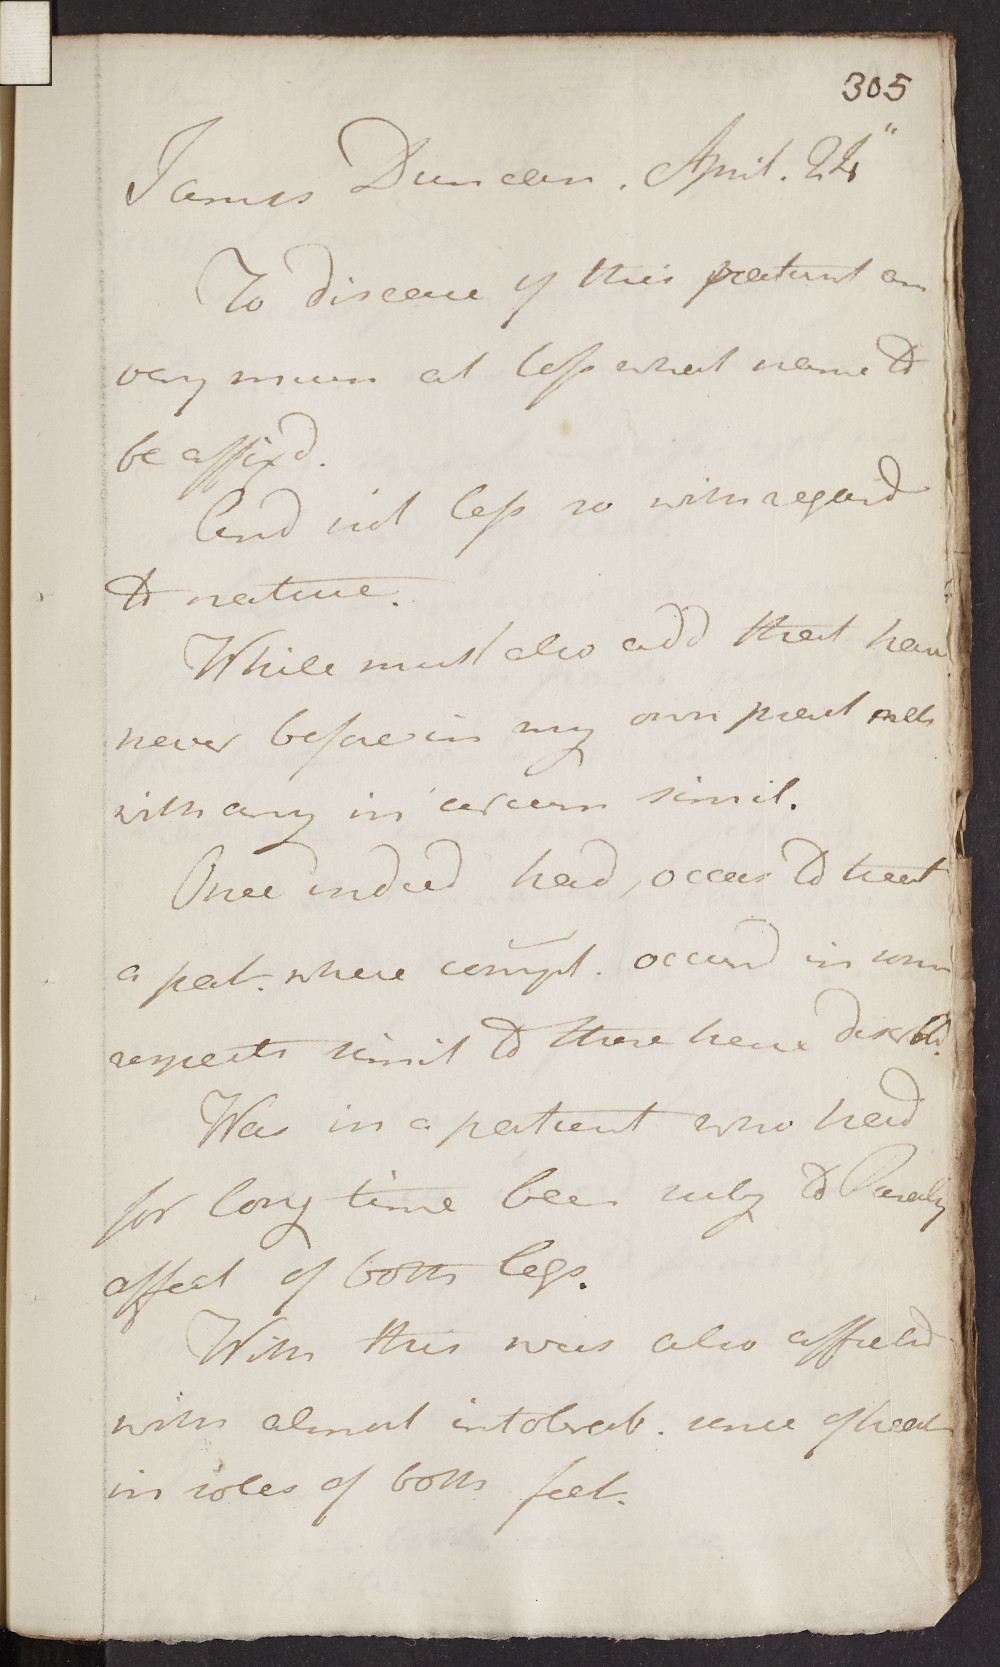 305
James Duncan. April. 24"
To disease of this patient am
very much at loss what name to
be affixd.
And not less so with regard
to nature.
While must also add that have
never before in my own pract met
with any in simil.
Once indeed had, occas to treat
a pat. where compt. occurd in some
respects simil to those here describ.
Was in a patient who had
for long time been subj to Paraly
affect of both legs.
With this was also affected
with almost intolerab. sense of heat
in soles of both feet.